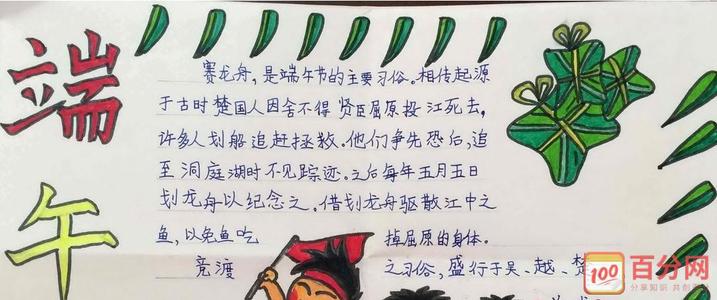 端午
赛龙舟，是端午节的主要习俗。相传起源
于古时楚国人因舍不得贤臣屈原投江死去，
许多人划船追赶拯救。他们争先恐后，追
至洞庭湖时不见踪迹。之后每年五月五日
划龙舟以纪念之。借划龙舟驱散江中之
鱼，以免鱼吃 掉屈原的身体。
竞渡 之习俗，盛行于吴、越、楚
100 百分网
分享知识 共创